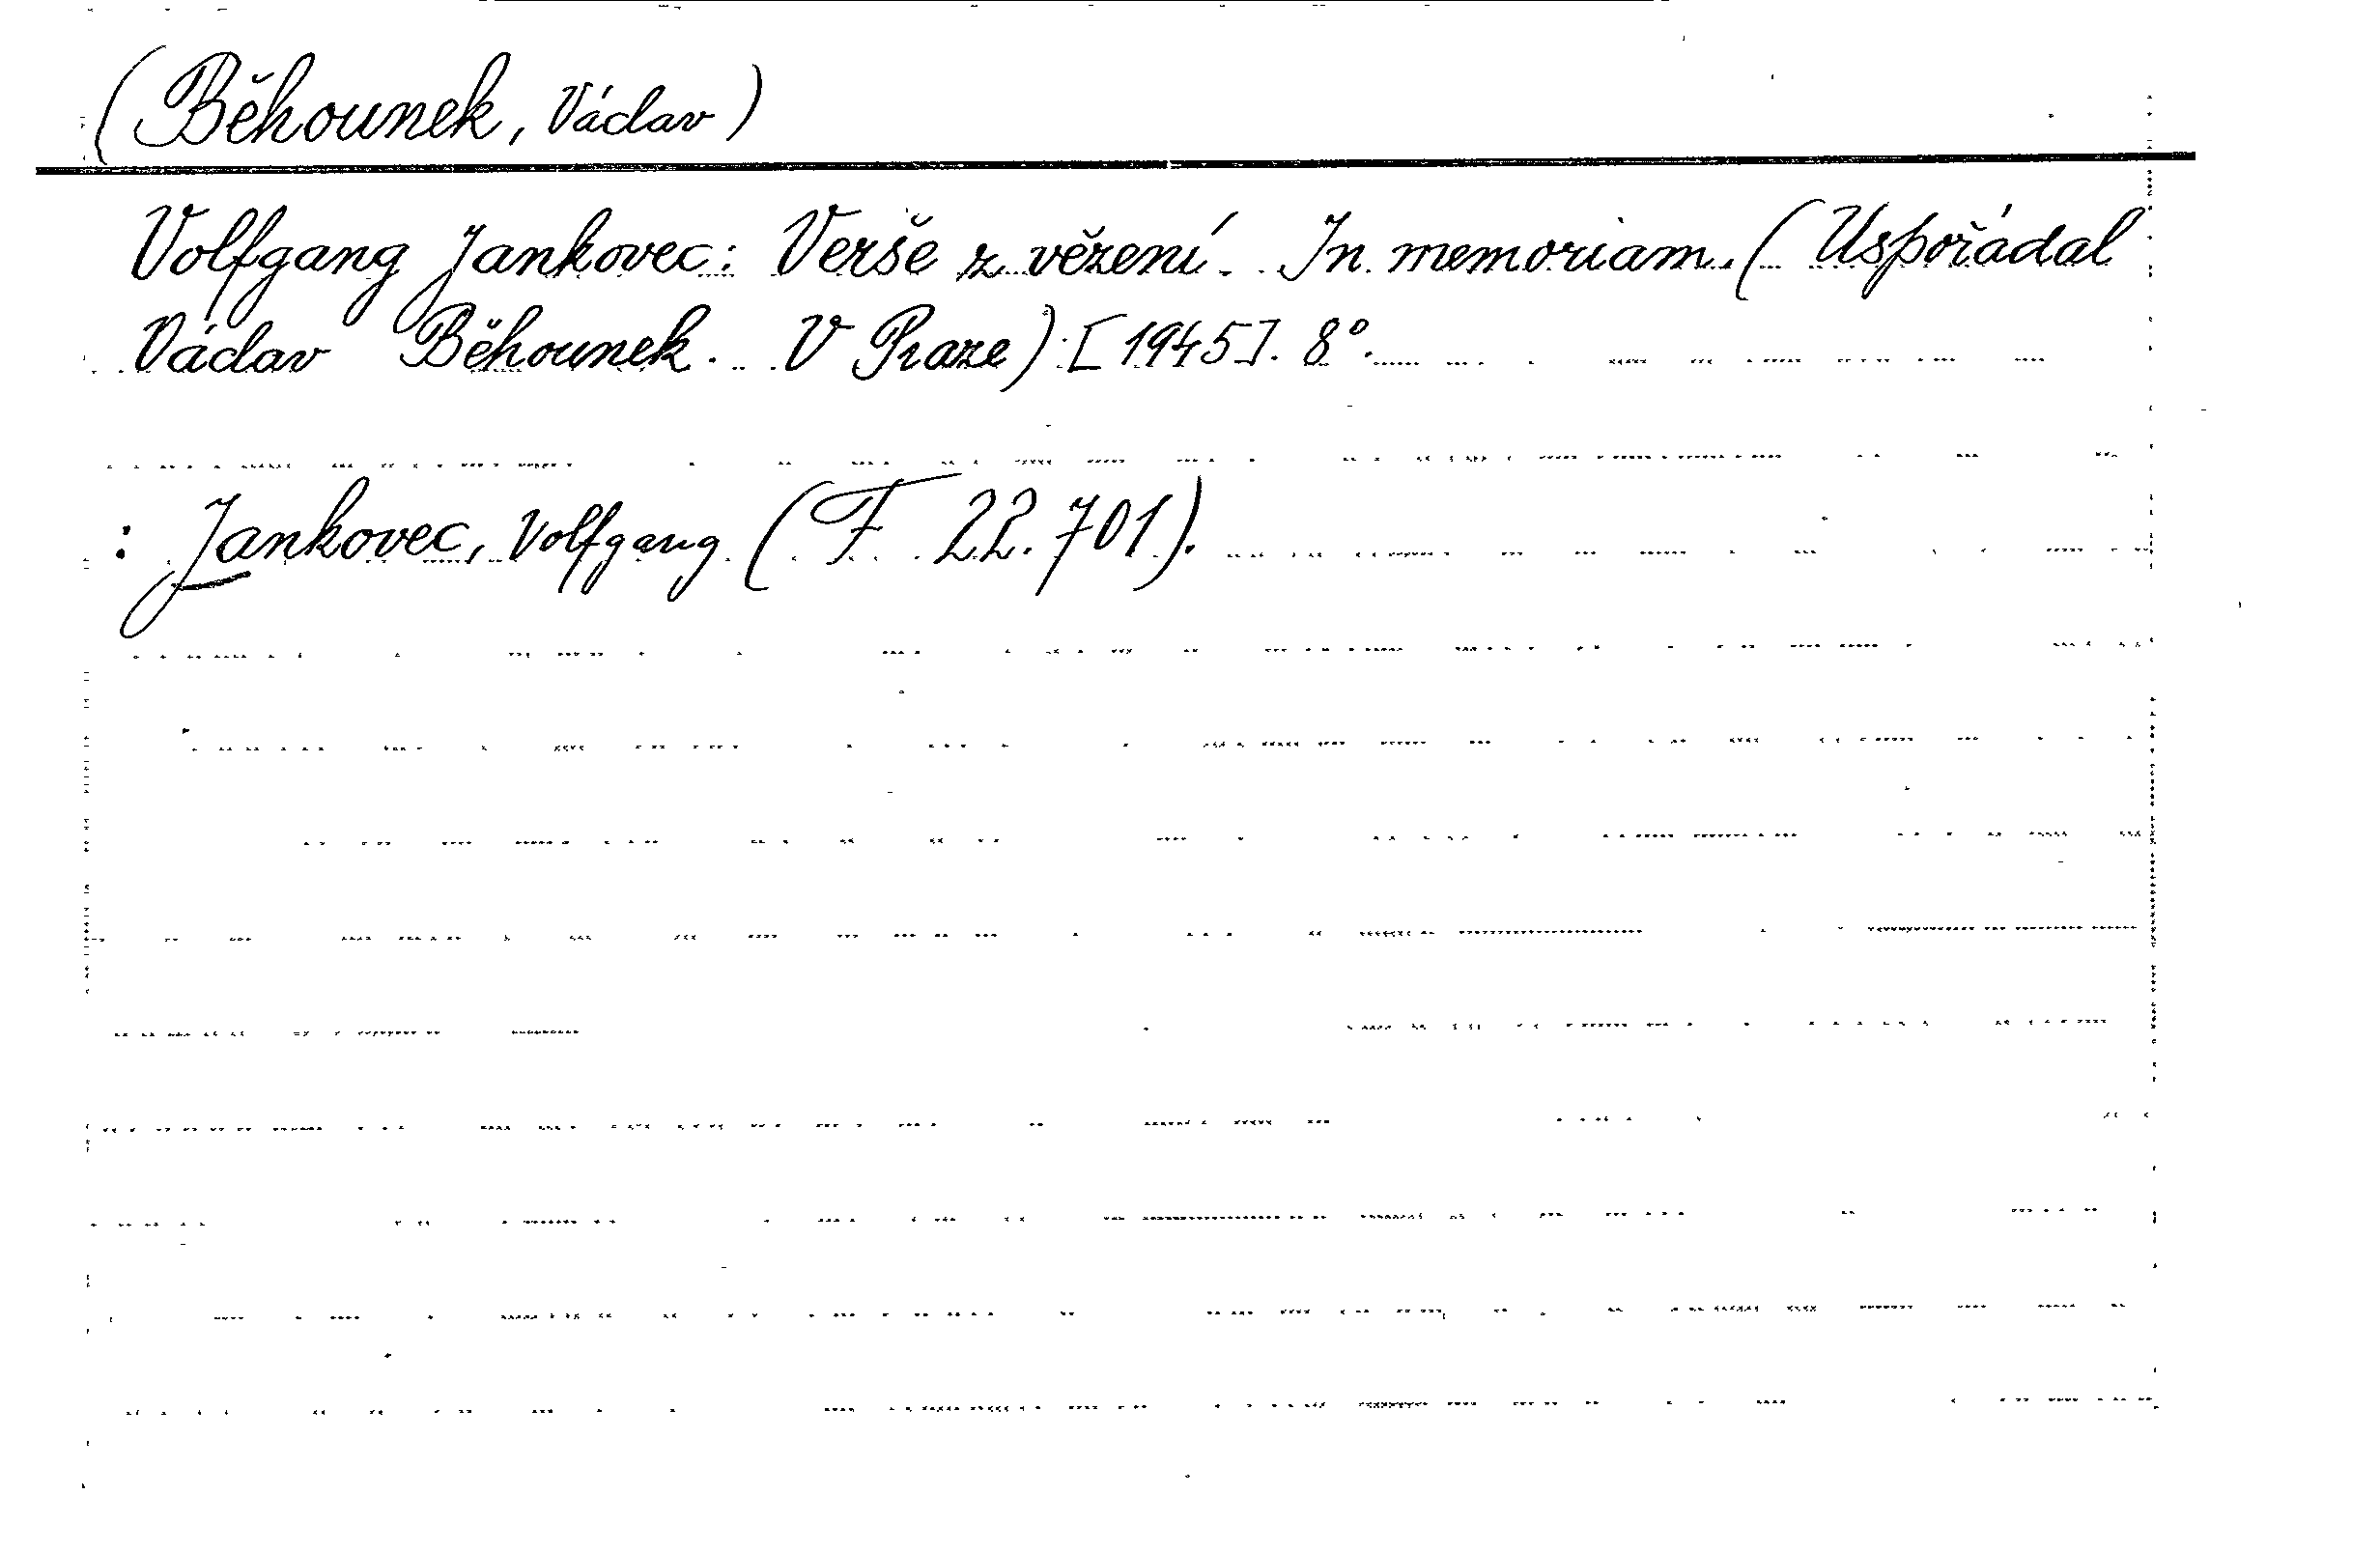 (Běhounek, Václav)
Volfgang Jankovec: Verše z vězení. In memoriam. (Uspořádal
Václav Běhounek. V Praze) [1945]. 8°.
: Jankovec, Volfgang (F 22.701).